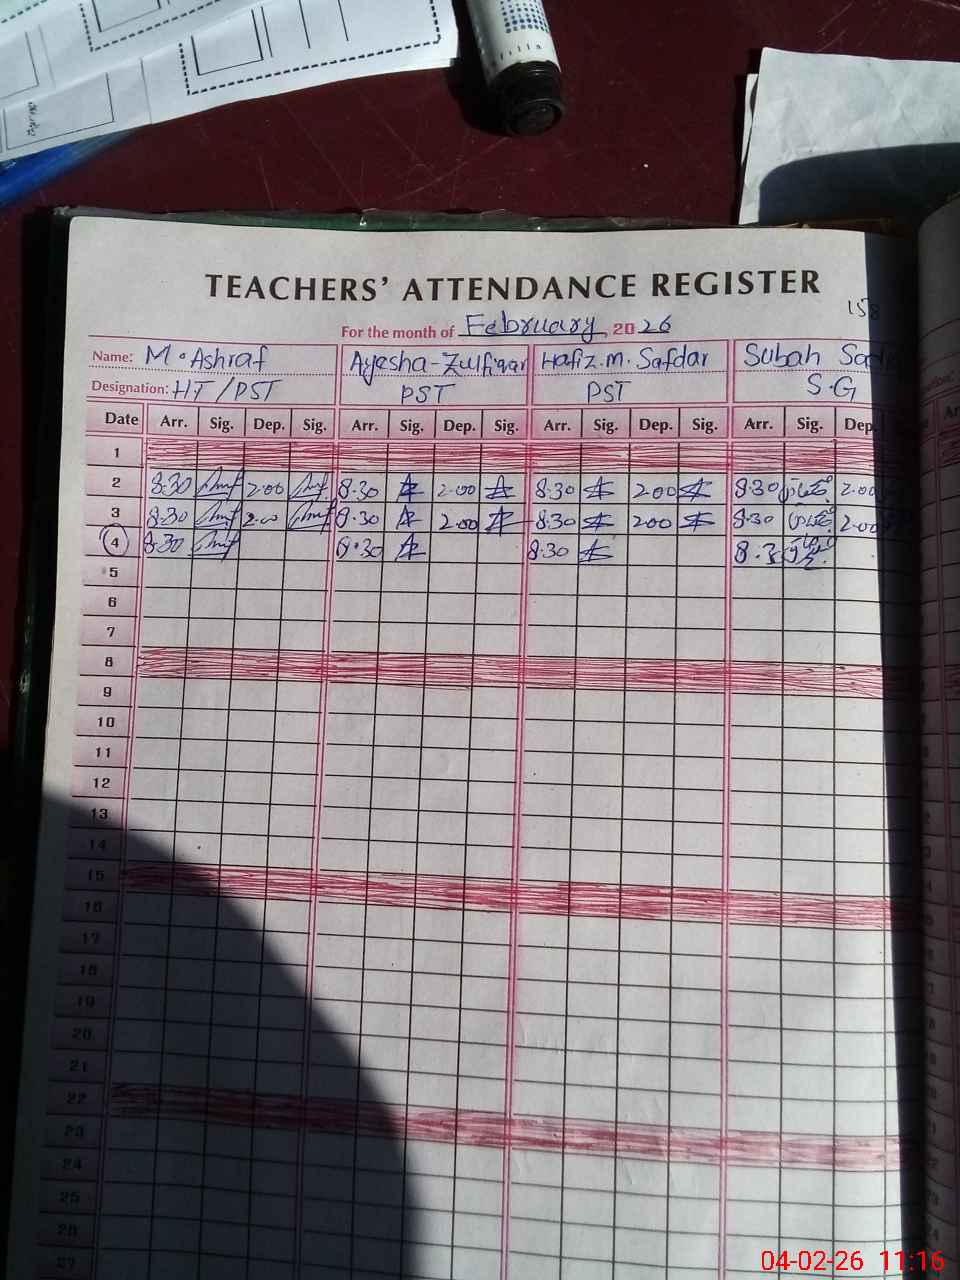 TEACHERS' ATTENDANCE REGISTER
158
For the month of February 2026
Name: M. Ashraf Ayesha-Zulfiqar Hafiz.m. Safdar Subah
Designation: HT/PST PST PST S.G
Date Arr. Sig. Dep. Sig. Arr. Sig. Dep. Sig. Arr. Sig. Dep. Sig. Arr. Sig. Dep.
1
2 8.30 2.00 8.30 2.00 8.30 2.00 8.30 2.00
3 8.30 2.00 8.30 2.00 8.30 2.00 8.30 2.00
4 8.30 8.30 8.30 8.3
5
6
7
8
9
10
11
12
13
14
15
16
17
18
19
20
21
22
23
24
25
26
27
04-02-26 11:16